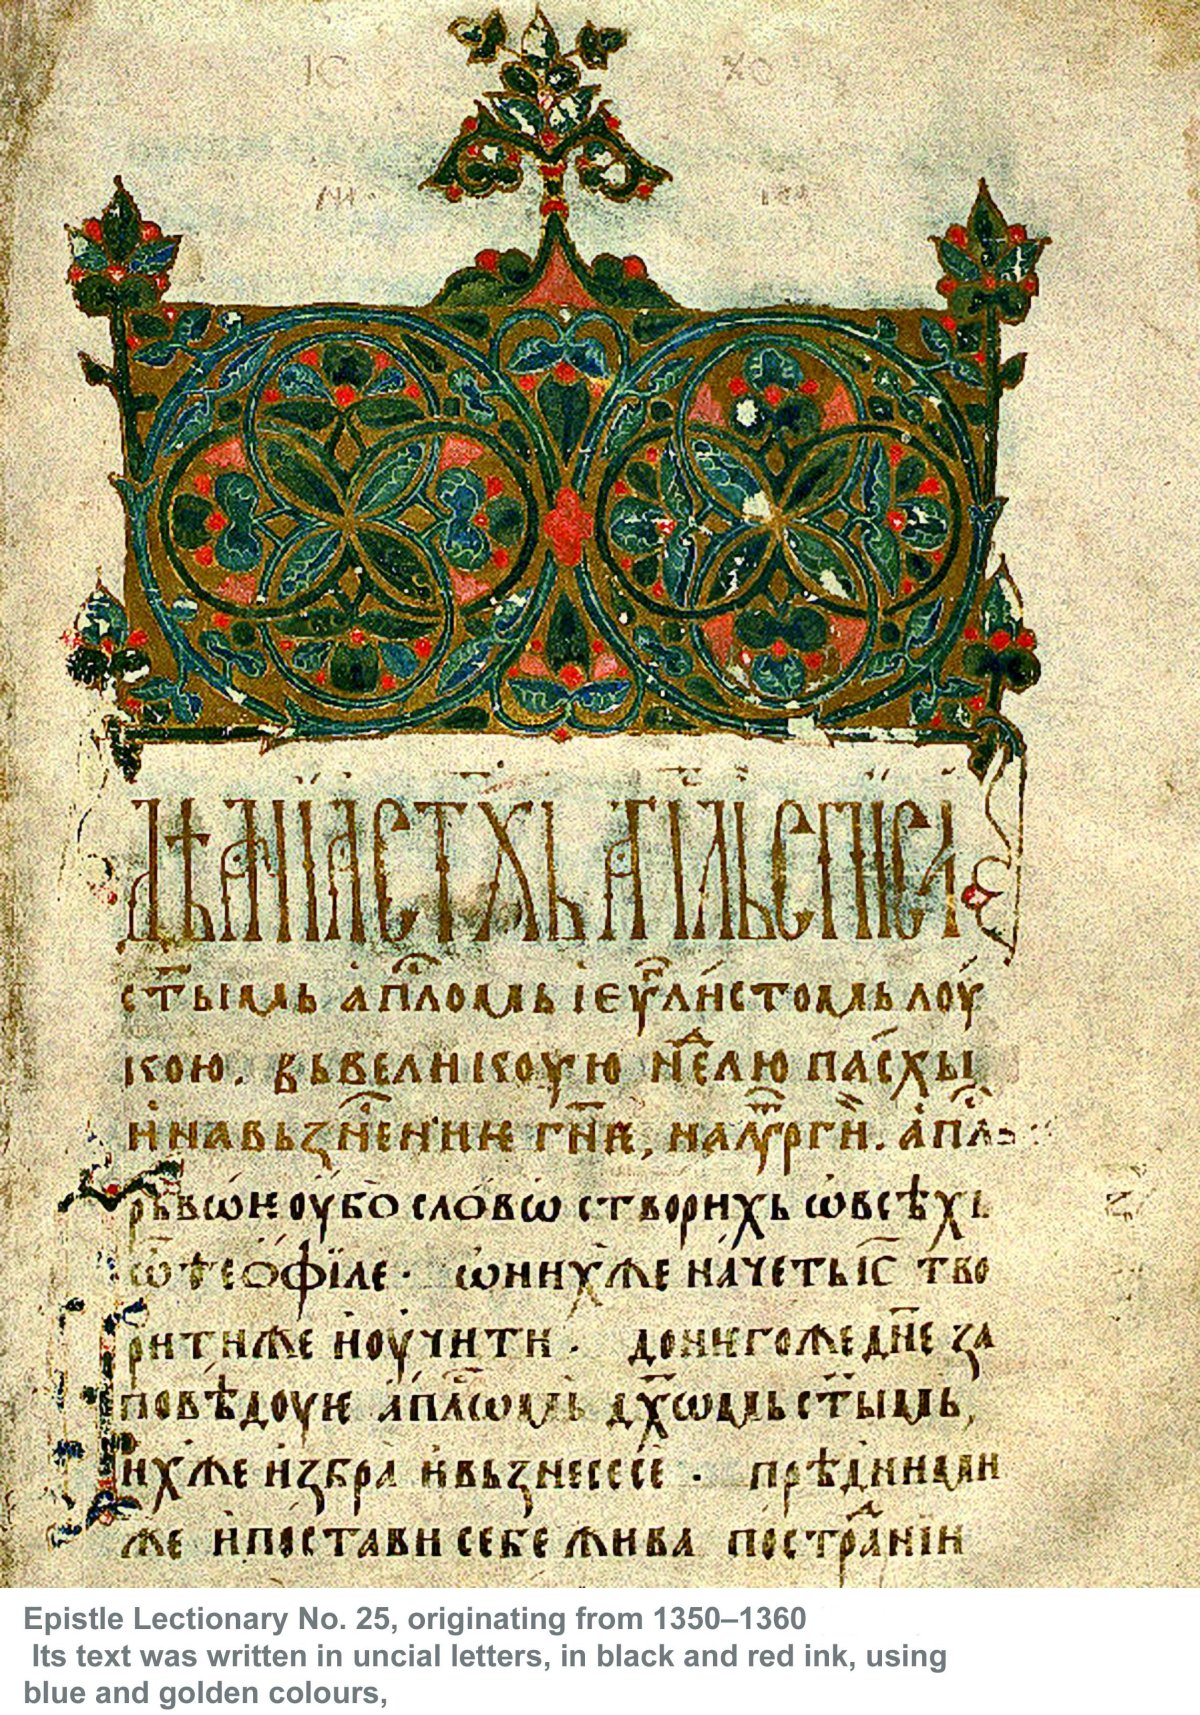 ДѢАНІА СТ҃ХЬ АП҃ЛЬ ЕПИСА
ст҃ыимь ап҃ломь і еѵ҃листомь лоу
кою. вь великоую нед҃елю пасхы
и на вьзн҃ении гн҃и, на литоургии. ап҃л
рьвѡѥ оубо словѡ створихь ѡ всѣхь
ѡ ѳеѡфїле · ѡ нихже начеть іс҃ тво
рити же и оучити · до нѥгоже дн҃е за
повѣдоуѥ ап҃лѡмь дх҃ѡмь ст҃ыимь,
ихже избра и вьзнесесе · прѣд ними
же и постави себе жива по страдании
Epistle Lectionary No. 25, originating from 1350–1360
Its text was written in uncial letters, in black and red ink, using
blue and golden colours,